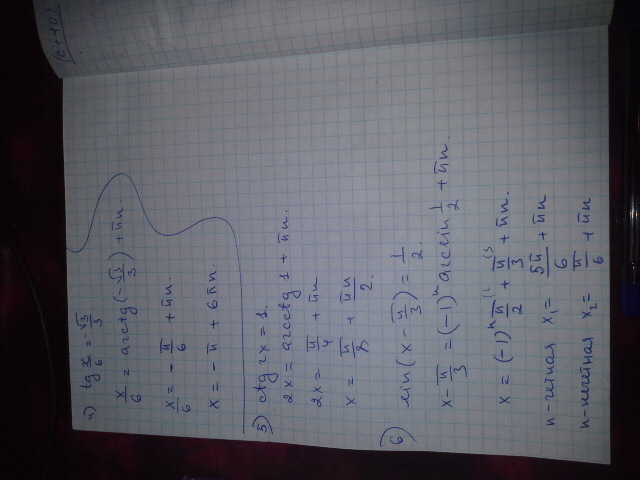 4) tg x/6 = -√3/3
x/6 = arctg(-√3/3) + πn
x/6 = -π/6 + πn.
x = -π + 6πn.
5) ctg 2x = 1.
2x = arcctg 1 + πn.
2x = π/4 + πn
x = π/8 + πn/2.
6) sin(x - π/3) = 1/2.
x - π/3 = (-1)ⁿ arcsin 1/2 + πn.
x = (-1)ⁿ π/2 + π/3 + πn.
n-четная x₁ = 5π/6 + πn
n-нечетная x₂ = π/6 + πn